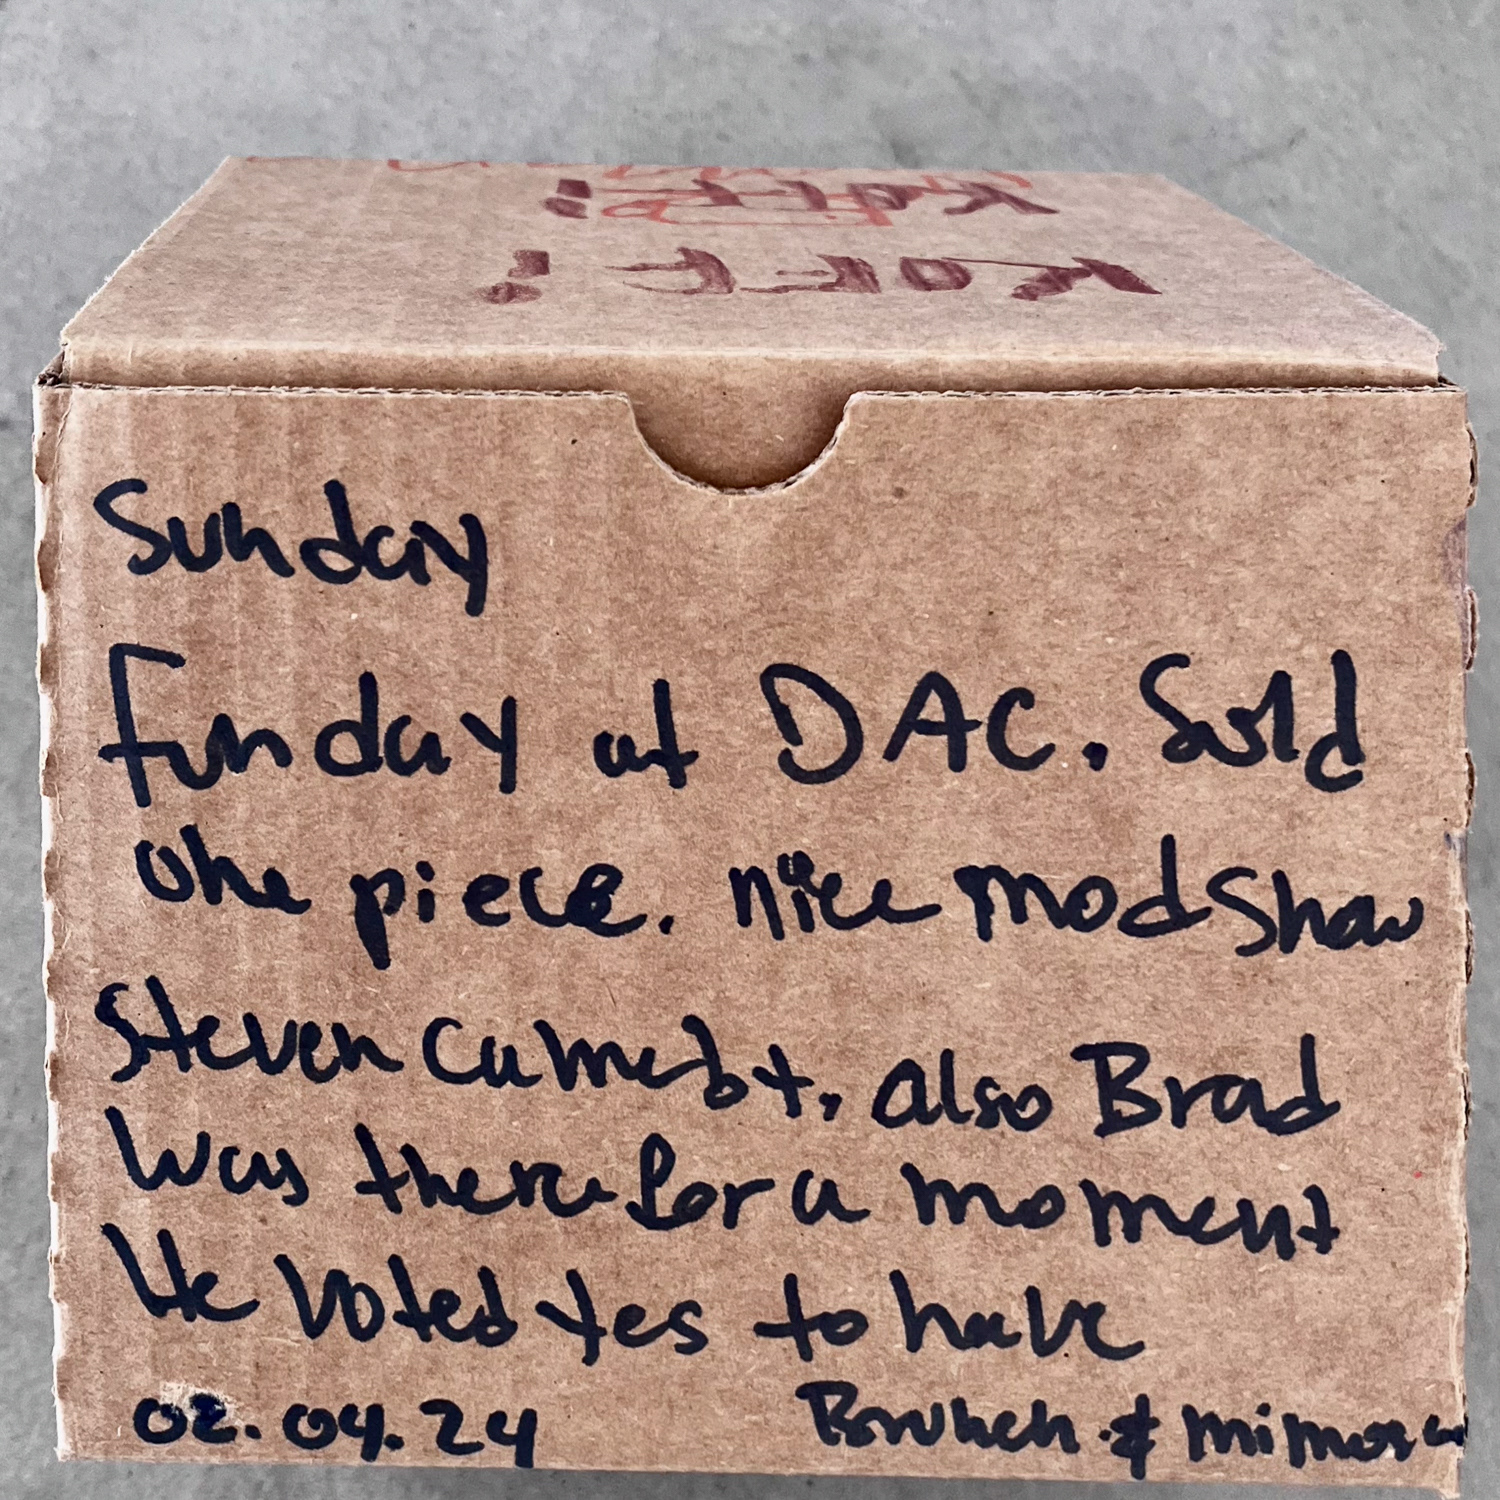 KOFF!
KOFF!
Sunday
Funday at DAC. Sold
one piece. nice mod show
Steven Cumebt. also Brad
was there for a moment
He voted yes to have
02.04.24 Brunch & mimor